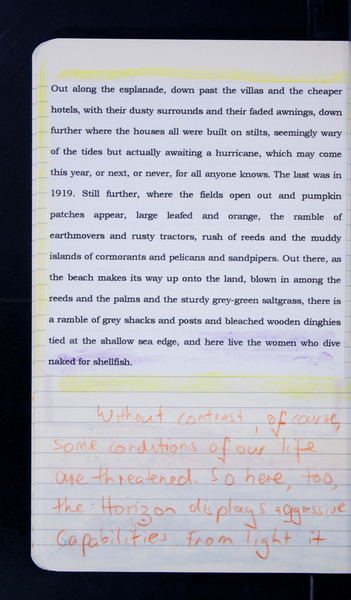 Out along the esplanade, down past the villas and the cheaper
hotels, with their dusty surrounds and their faded awnings, down
further where the houses all were built on stilts, seemingly wary
of the tides but actually awaiting a hurricane, which may come
this year, or next, or never, for all anyone knows. The last was in
1919. Still further, where the fields open out and pumpkin
patches appear, large leafed and orange, the ramble of
earthmovers and rusty tractors, rush of reeds and the muddy
islands of cormorants and pelicans and sandpipers. Out there, as
the beach makes its way up onto the land, blown in among the
reeds and the palms and the sturdy grey-green saltgrass, there is
a ramble of grey shacks and posts and bleached wooden dinghies
tied at the shallow sea edge, and here live the women who dive
naked for shellfish.
Without contrast, of course,
some conditions of our life
are threatened. So here, too,
the Horizon displays aggressive
Capabilities. From light it